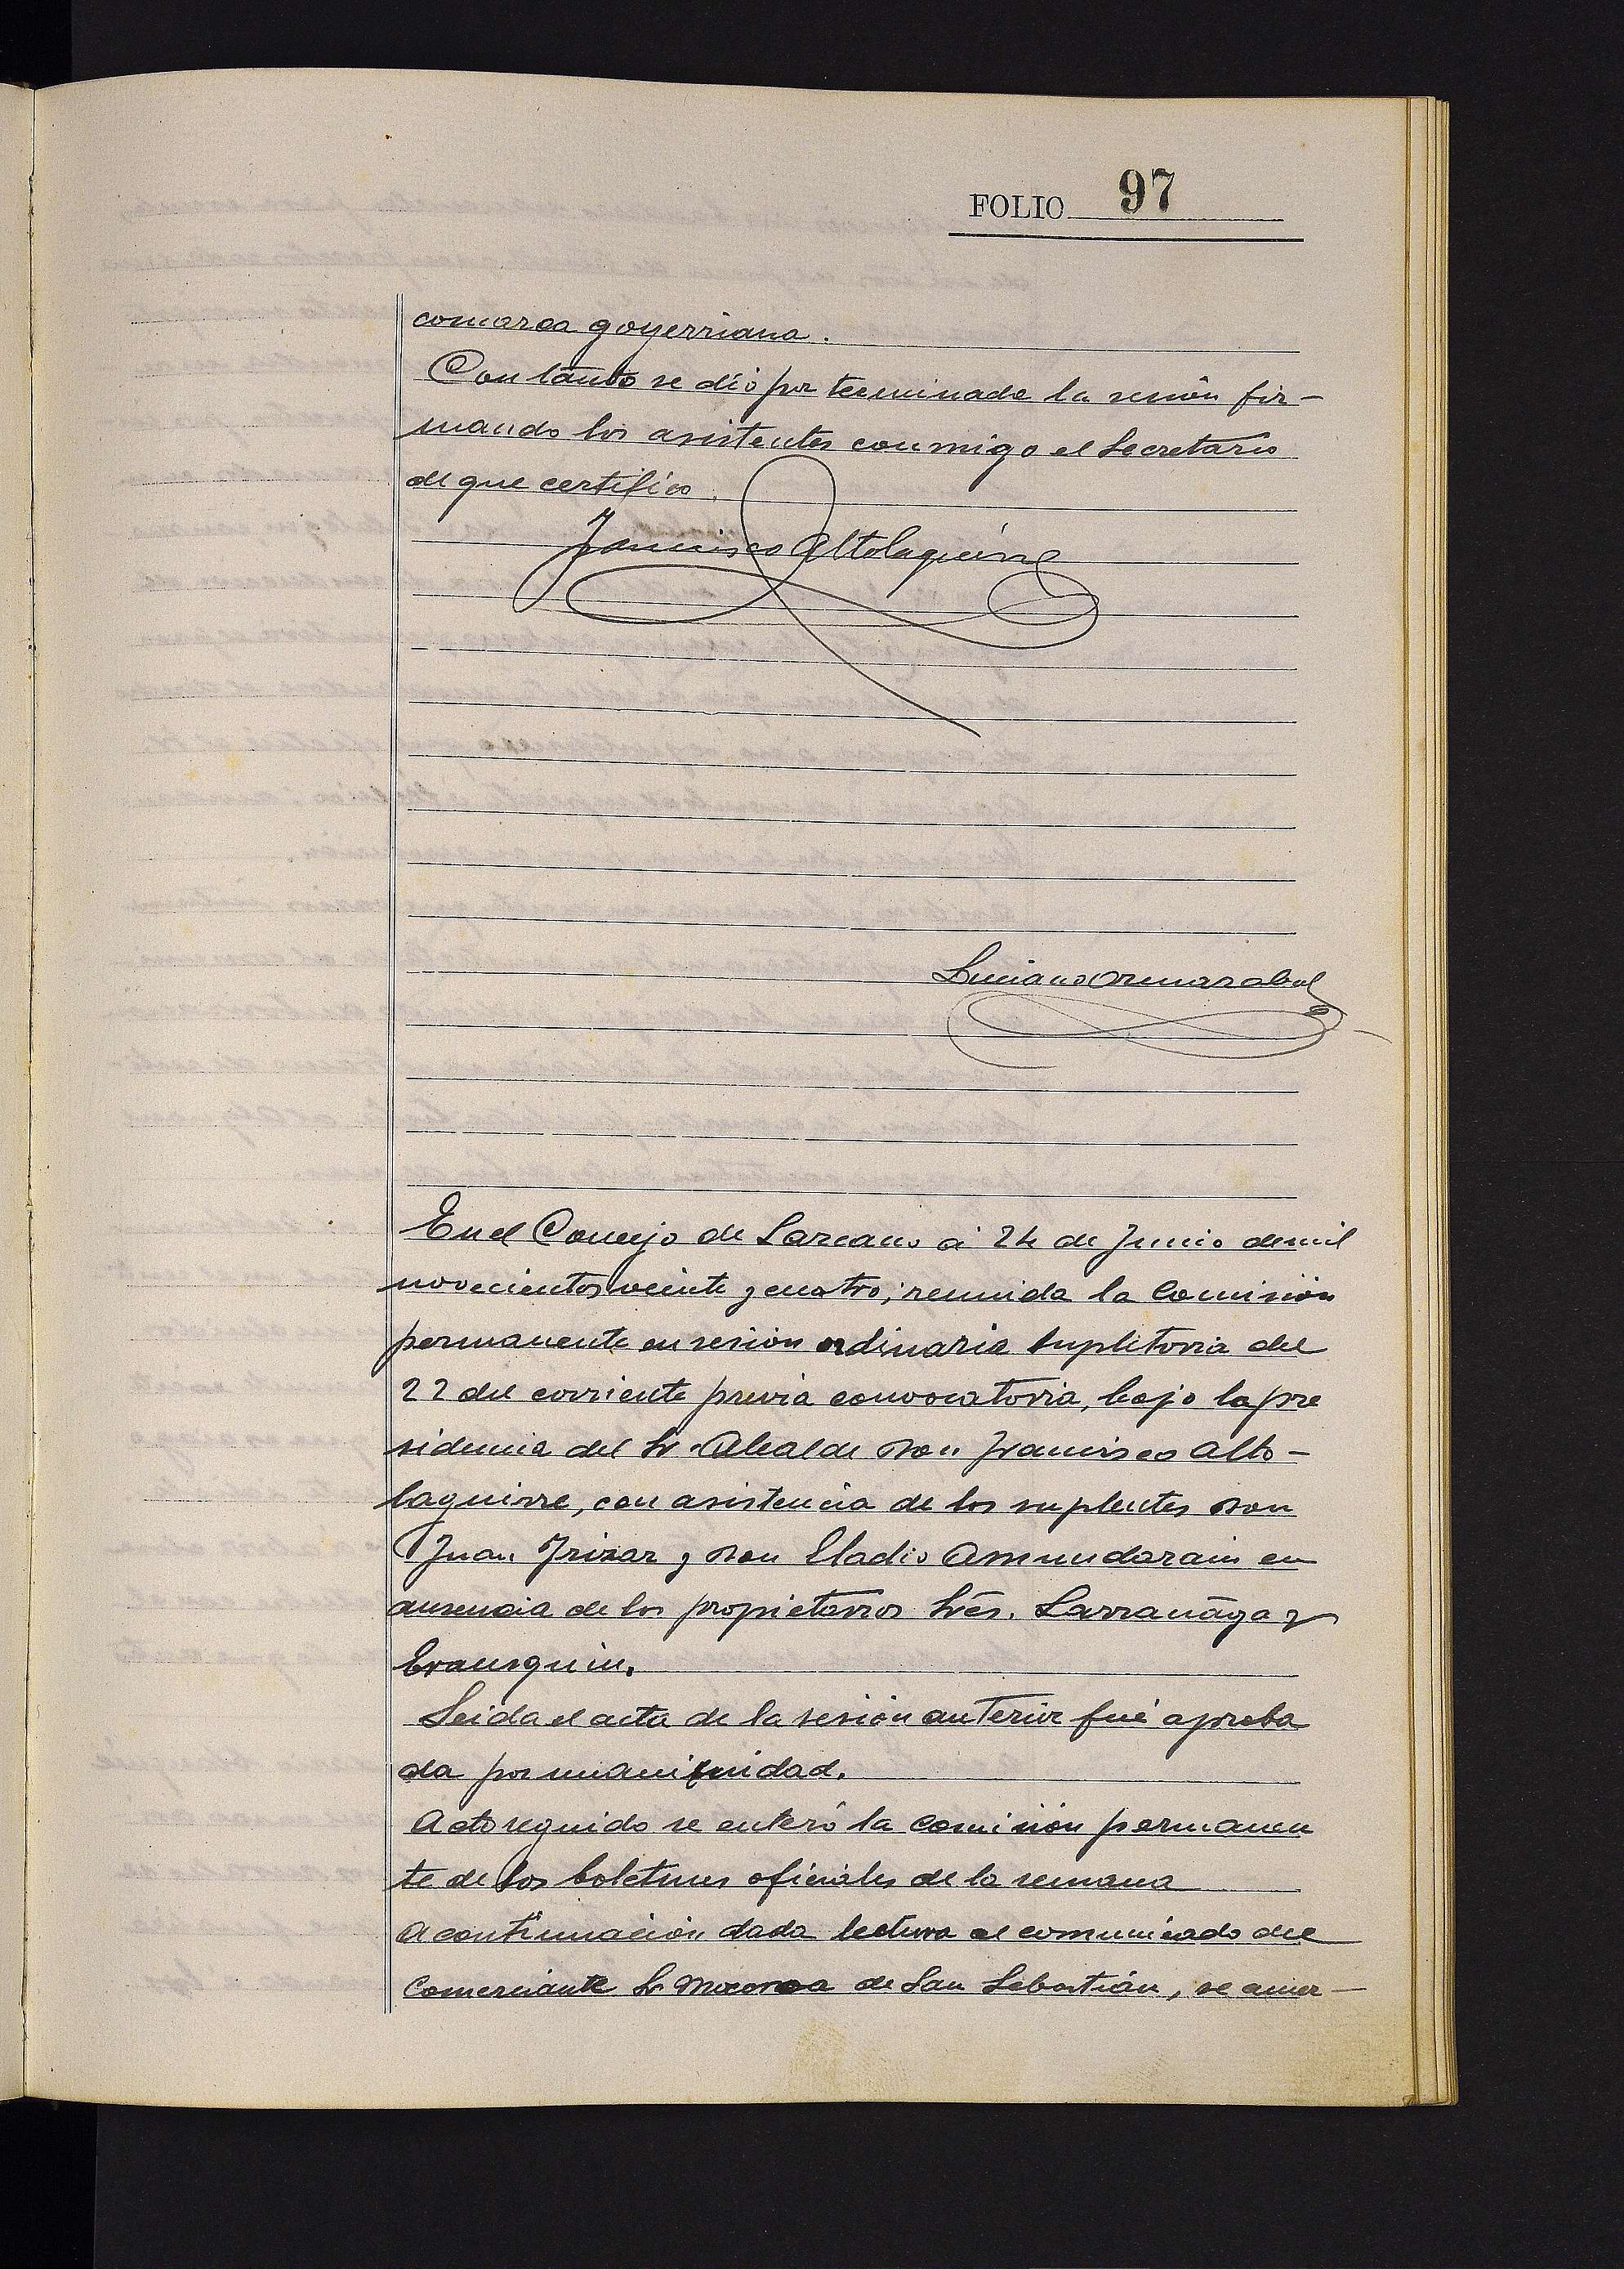 FOLIO 97
comarca goyerriana.
Con tanto se dió por terminada la sesión fir-
mando los asistentes conmigo el Secretario
de que certifico.
Francisco Altolaguirre
Luciano Ormazabal
En el Concejo de Lazcano á 24 de Junio de mil
novecientos veinte y cuatro; reunida la Comisión
permanente en sesión ordinaria supletoria del
22 del corriente previa convocatoria, bajo la pre
sidencia del Sr. Alcalde Don Francisco Alto-
laguirre, con asistencia de los suplentes Don
Juan Irizar y Don Eladio Amundarain en
ausencia de los propietarios Srés. Larrañaga y
Erausquin.
Leida el acta de la sesión anterior fué aproba
da por unanimidad.
Acto seguido se enteró la Comisión permanen
te de los boletines oficiales de la semana
A continuación dada lectura al comunicado del
Comerciante Sr Mocoroa de San Sebastián, se acor-